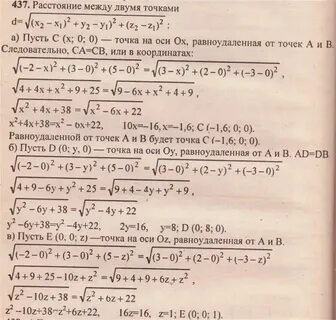 437. Расстояние между двумя точками
d=√(x₂ – x₁)² + y₂ – y₁)² + (z₂ – z₁)² ;
а) Пусть C (x; 0; 0) — точка на оси Ox, равноудаленная от точек A и B.
Следовательно, CA=CB, или в координатах:
√(–2–x)²+(3–0)²+(5–0)² = √(3–x)²+(2–0)²+(–3–0)² ,
√4+4x+x²+9+25 = √9–6x+x²+4+9 ,
√x²+4x+38 = √x²–6x+22
x²+4x+38=x²–6x+22, 10x=–16, x=–1,6; C (–1,6; 0; 0).
Равноудаленной от точек A и B будет точка C (–1,6; 0; 0).
б) Пусть D (0; y, 0) – точка на оси Oy, равноудаленная от A и B. AD=DB
√(–2–0)²+(3–y)²+(5–0)² = √(3–0)²+(2–y)²+(–3–0)²
√4+9–6y+y²+25 = √9+4–4y+y²+9 ,
√y²–6y+38 = √y²–4y+22
y²–6y+38=y²–4y+22, 2y=16, y=8; D (0; 8; 0).
в) Пусть E (0, 0; z) —точка на оси Oz, равноудаленная от A и B.
√(–2–0)²+(3–0)²+(5–z)² = √(3–0)²+(2–0)²+(–3–z)²
√4+9+25–10z+z² = √9+4+9+6z+z² ,
√z²–10z+38 = √z²+6z+22
z²–10z+38=z²+6z+22, 16z=16, z=1; E (0; 0; 1).